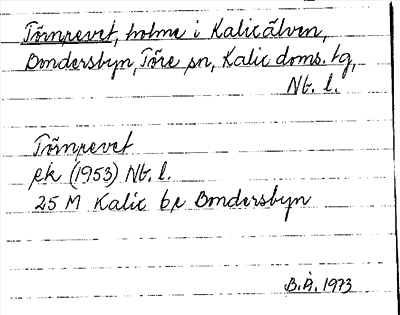 Törnrevet, holme i Kalixälven,
Bondersbyn, Töre sn, Kalix doms. tg,
Nb. l.
Törnrevet
ek (1953) Nb. l.
25 M Kalix bx Bondersbyn
B.Å. 1973